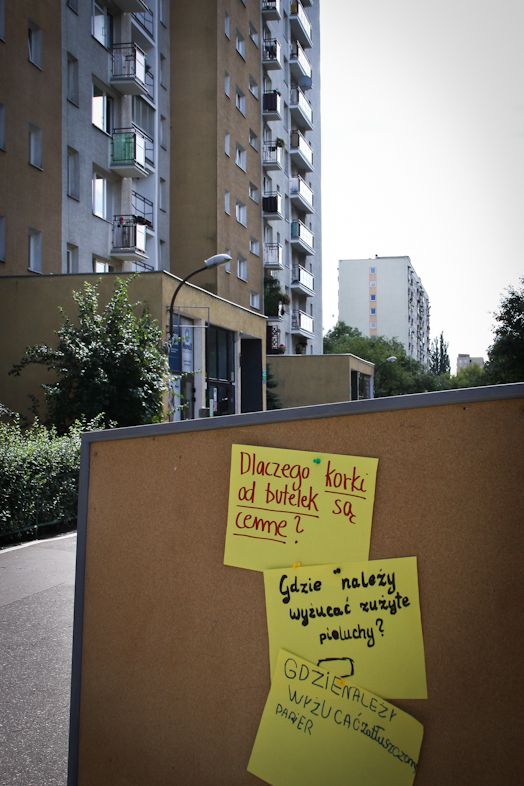 Dlaczego korki
od butelek są
cenne?
Gdzie należy
wyżucać zużyte
pieluchy?
GDZIE NALEŻY
WYŻUCAĆ zatłuszczony
PAPIER